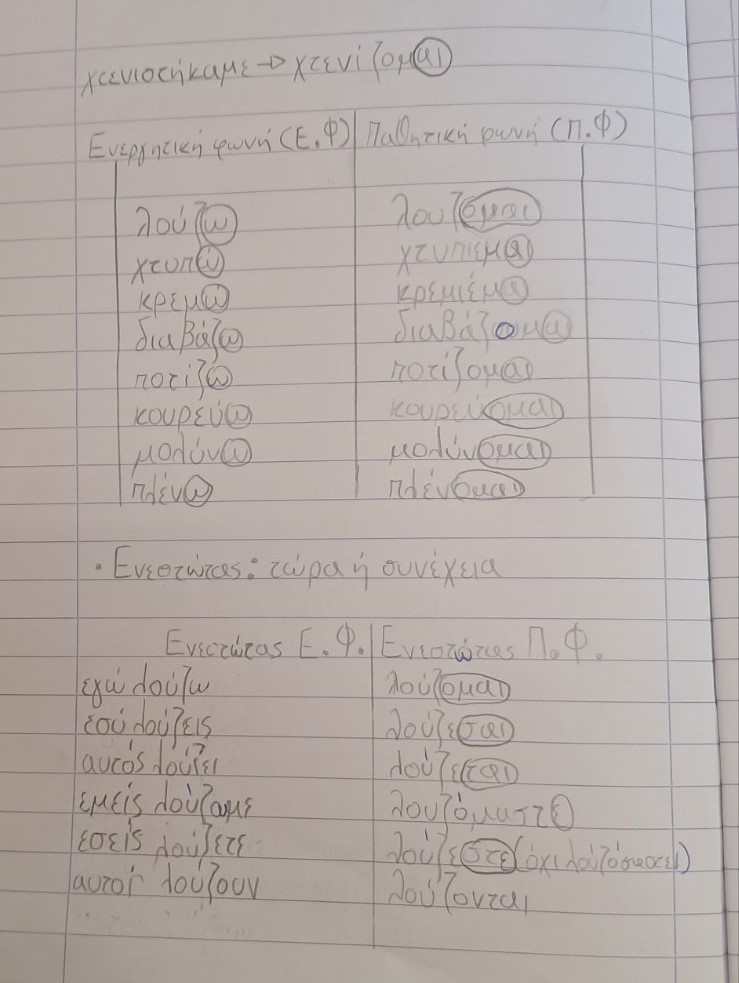 χτενιστήκαμε → χτενίζομαι
Ενεργητική φωνή (Ε.Φ) Παθητική φωνή (Π.Φ)
λούζω λουζομαι
χτυπώ χτυπιέμαι
κρεμώ κρεμιέμαι
διαβάζω διαβάζομαι
ποτίζω ποτίζομαι
κουρεύω κουρεύομαι
μολύνω μολύνομαι
πλένω πλένομαι
• Ενεστώτας: τώρα ή συνέχεια
Ενεστώτας Ε.Φ. Ενεστώτας Π.Φ.
εγώ λούζω λούζομαι
εσύ λούζεις λούζεσαι
αυτός λούζει λούζεται
εμείς λούζουμε λουζόμαστε
εσείς λούζετε λούζεστε (όχι λουζόσαστε)
αυτοί λούζουν λούζονται